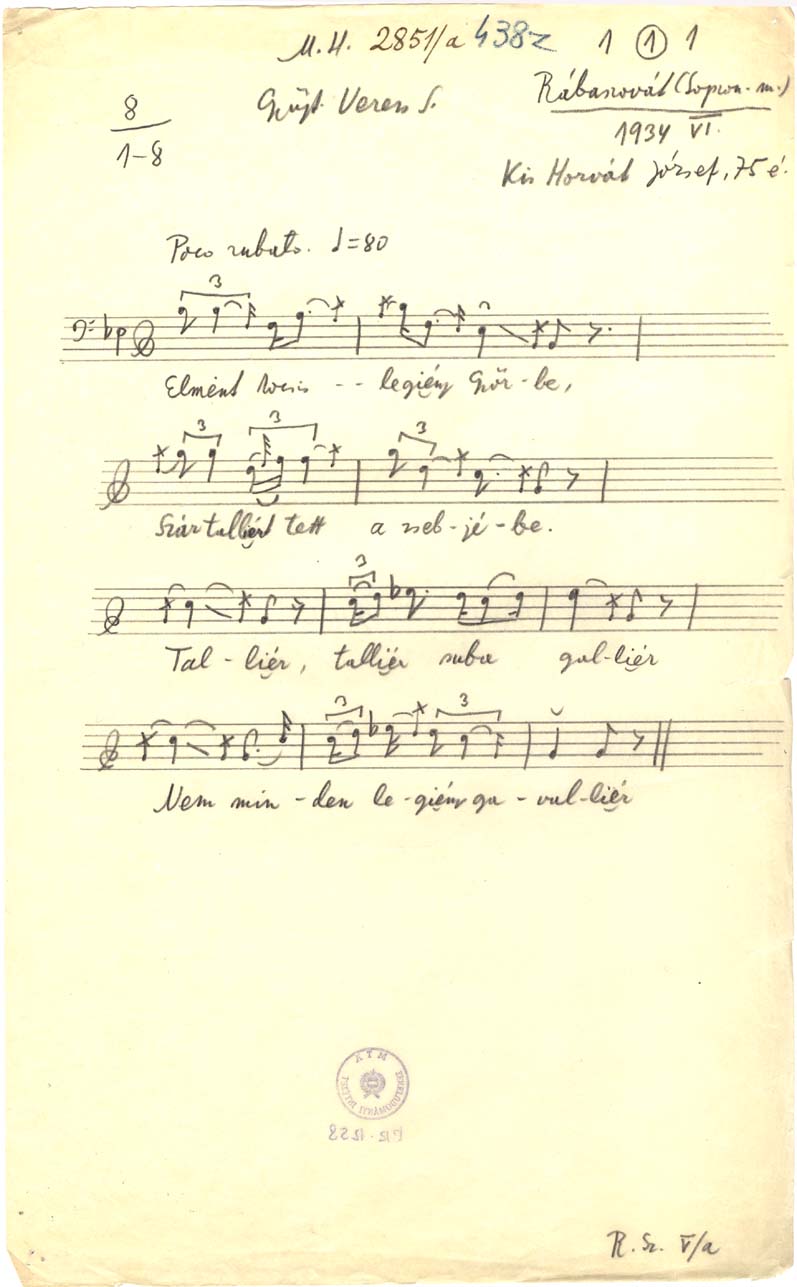 M.H. 2851/a 438z 1 1 1
8
1-8
Gyűjt. Veress S.
Rábaszovát (Sopron. m.)
1934 VI.
Kis Horváth József, 75 é.
Poco rubato. ♩=80
3
Elmënt kocsis -- legiény Győr-be,
3 3 3
Száz tulliért tett a zseb-jé-be.
3
Tal-liér, tulliér suba gal-liér
3 3
Nem min-den le-giény ga-vul-liér
MTA
R. Sz. V/a